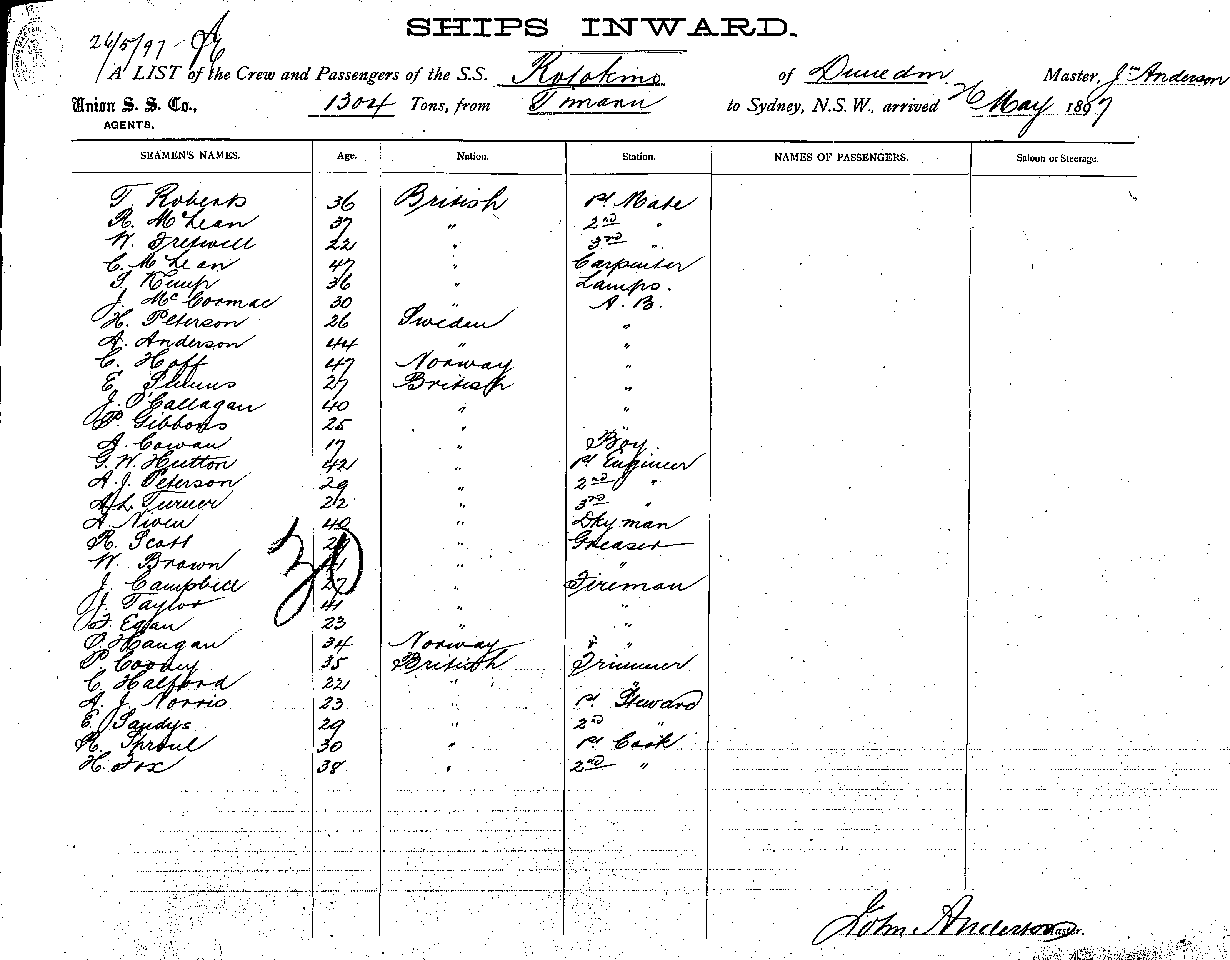 SHIPS INWARD.
26/5/97
A LIST of the Crew and Passengers of the S.S. Rotokino of Dunedin Master, Jno Anderson
Union S. S. Co., 1304 Tons, from Timaru to Sydney, N.S.W., arrived 26 May 1897
AGENTS.
SEAMEN'S NAMES. Age. Nation. Station. NAMES OF PASSENGERS. Saloon or Steerage.
T. Roberts 36 British 1st Mate
R. McLean 37 " 2nd "
W. Fretwell 22 " 3rd "
C. McLean 47 " Carpenter
Kemp 36 " Lamps.
J. McCormac 30 " A. B.
H. Peterson 26 Sweden "
A. Anderson 44 " "
C. Hoff 47 Norway "
E. 27 British "
J. O'Callagan 40 " "
P. Gibbons 25 " "
A. Cowan 17 " Boy.
G. W. Hutton 42 " 1st Engineer
A. J. Peterson 29 " 2nd "
Turner 22 " 3rd "
A. Niven 40 " Dkyman
R. Scott " Greaser
W. Brown " "
J. Campbell 27 " Fireman
J. Taylor 41 " "
Egan 23 " "
30
O. Haugan 34 Norway "
P. Coody 35 British Trimmer
C. Halford 22 " "
A. J. Norris 23 " 1st Steward
E. Sandys 29 " 2nd "
R. Sproul 30 " 1st Cook
H. Fox 38 " 2nd "
John Anderson Master.